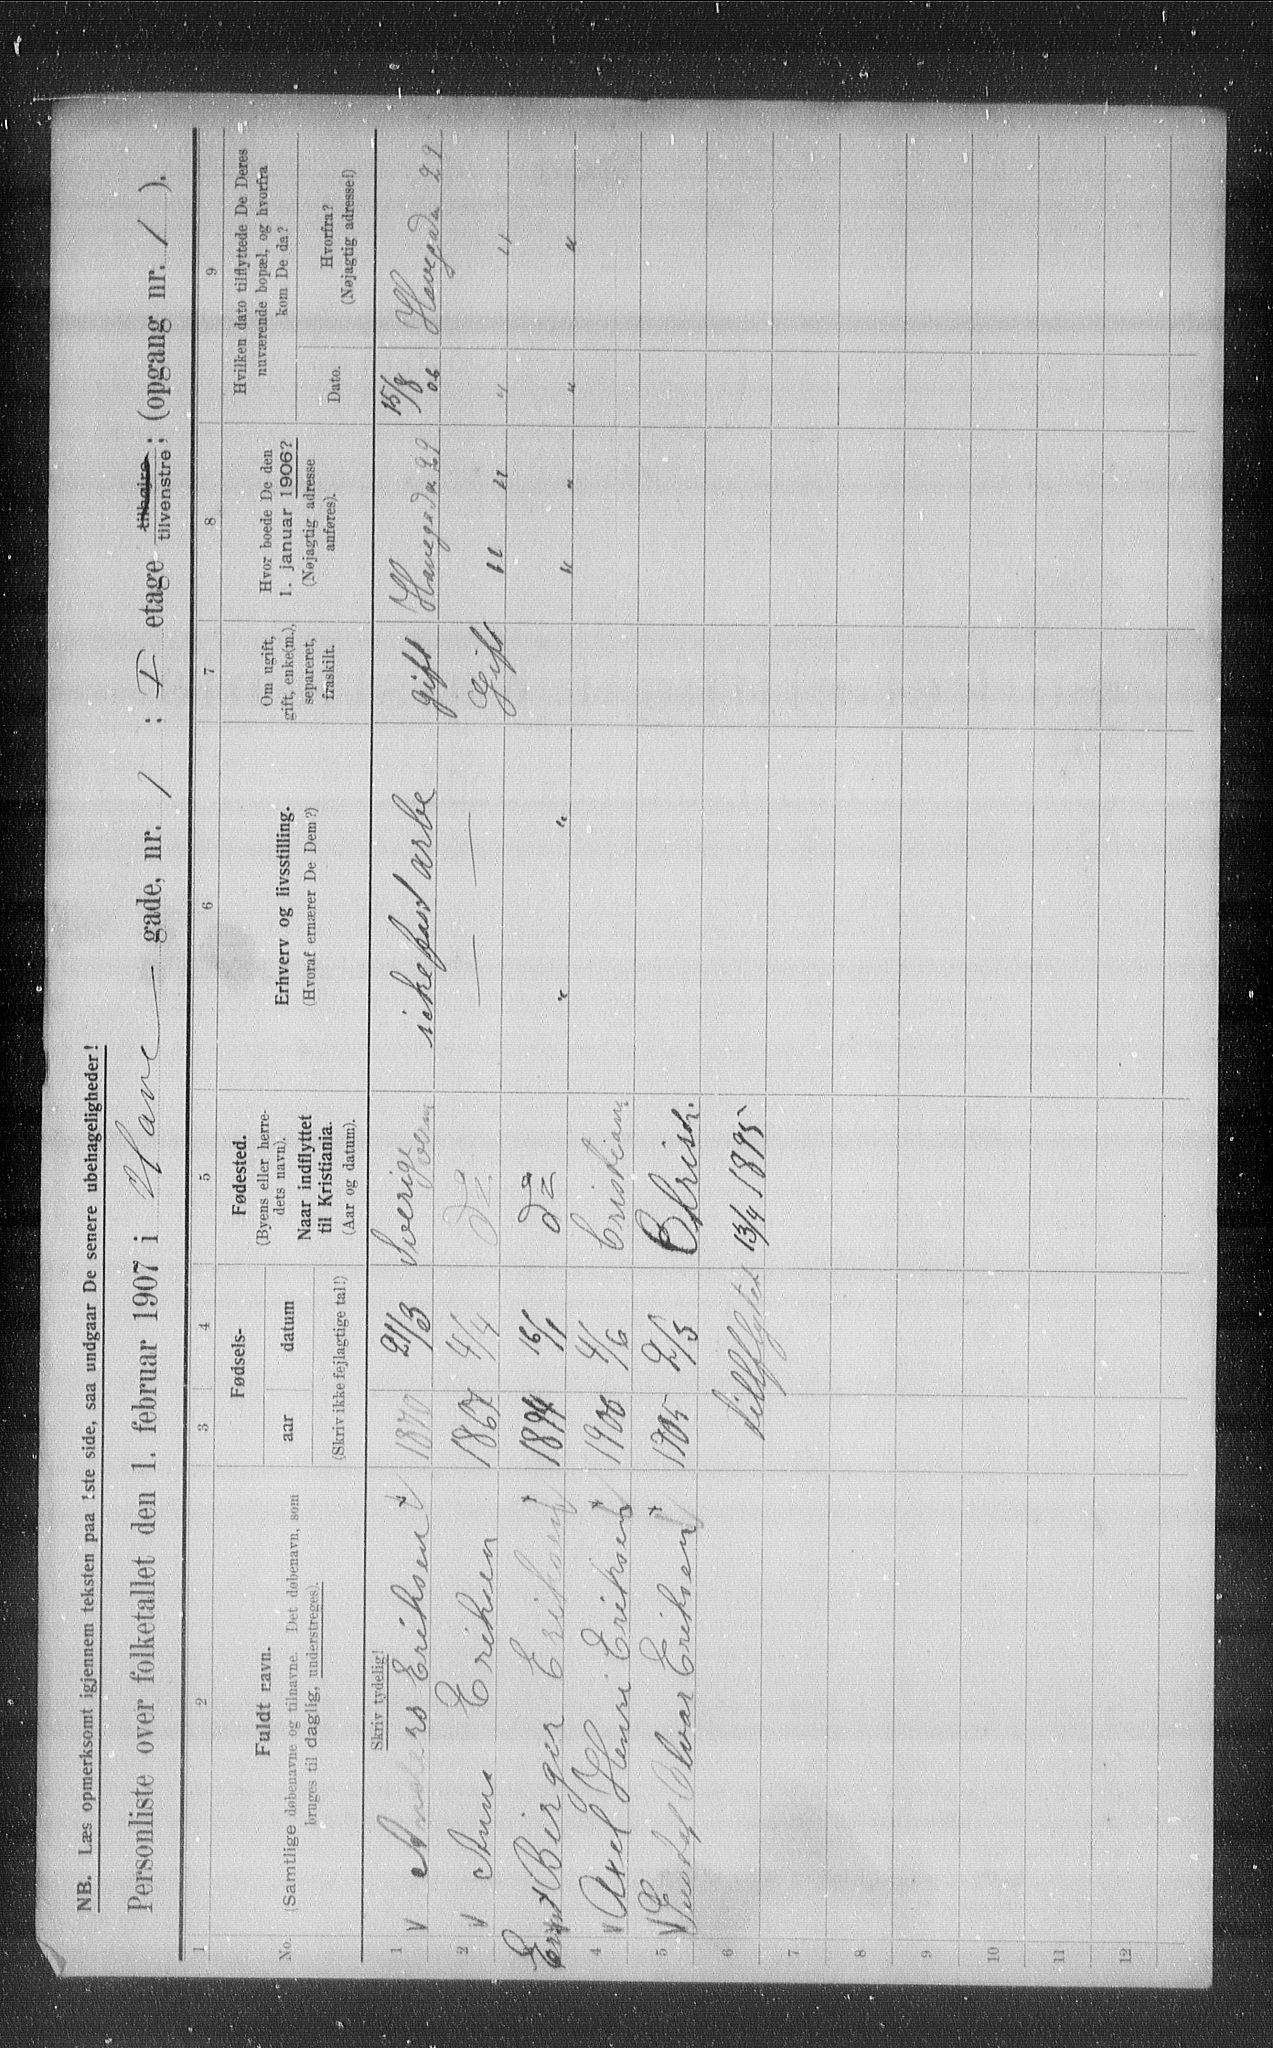 NB. Læs opmerksomt igjennem teksten paa 1ste side, saa undgaar De senere ubehageligheder!
Personliste over folketallet den 1. februar 1907 i Have gade, nr. 1 : I etage tilhøjre tilvenstre; (opgang nr. 1 ).
1 2 3 4 5 6 7 8 9
No.
Fuldt navn.
(Samtlige døbenavne og tilnavne. Det døbenavn, som
bruges til daglig, understreges).
Fødsels-
aar datum
(Skriv ikke fejlagtige tal!)
Fødested.
(Byens eller herre-
dets navn).
Naar indflyttet
til Kristiania.
(Aar og datum).
Erhverv og livsstilling.
(Hvoraf ernærer De Dem?)
Om ugift,
gift, enke(m.),
separeret,
fraskilt.
Hvor boede De den
1. januar 1906?
(Nøjagtig adresse
anføres).
Hvilken dato tilflyttede De Deres
nuværende bopæl, og hvorfra
kom De da?
Dato.
Hvorfra?
(Nøjagtig adresse!)
Skriv tydelig!
1 v Anders Eriksen 1870 21/3 Sverige gift Havegada 29 15/8 06 Havegada 29
2 v Anna Eriksen 1867 4/4 Do — — Gift " " " "
Ernst Birger Eriksen 1894 16/1 Do " " " " " "
4 v Axel Henri Eriksen 1900 4/6 Cristiania
5 v Gustaf Alvar Eriksen 1905 2/5
6 tillflyttet 13/4 1895
7
8
9
10
11
12